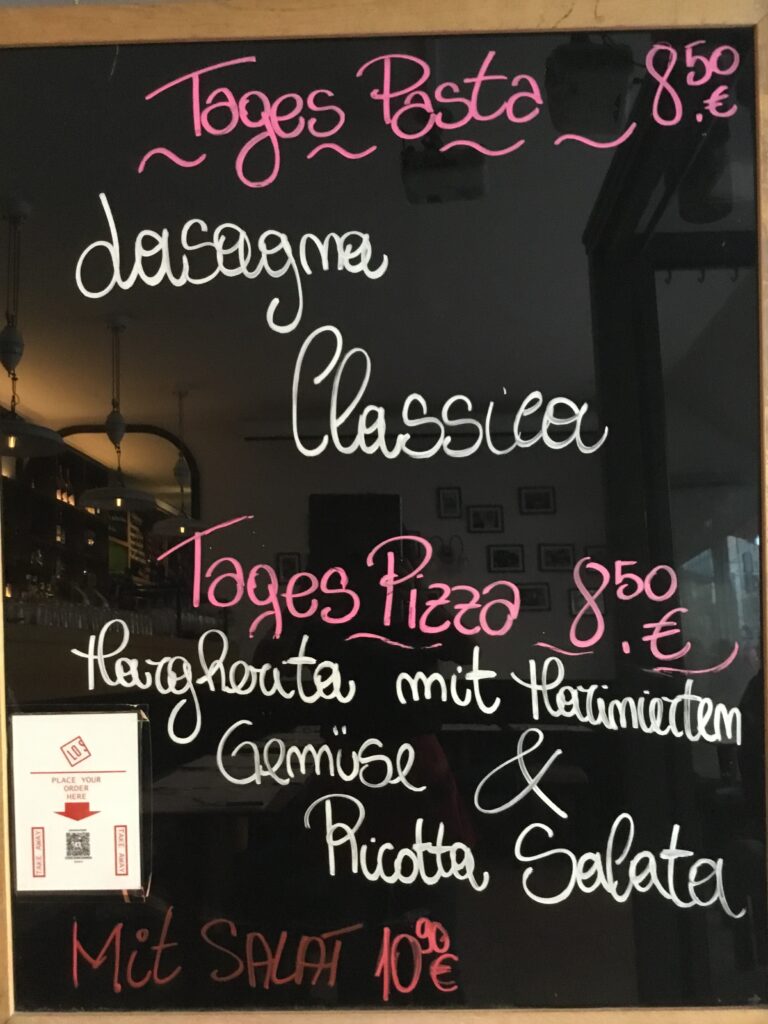 Tages Pasta 8.50 €
Lasagna
Classica
Tages Pizza 8.50 €
Margherita mit Marinierten
Gemüse &
Ricotta Salata
LO9
PLACE YOUR
ORDER
HERE
TAKE AWAY
TAKE AWAY
Mit SALAT 10.90 €